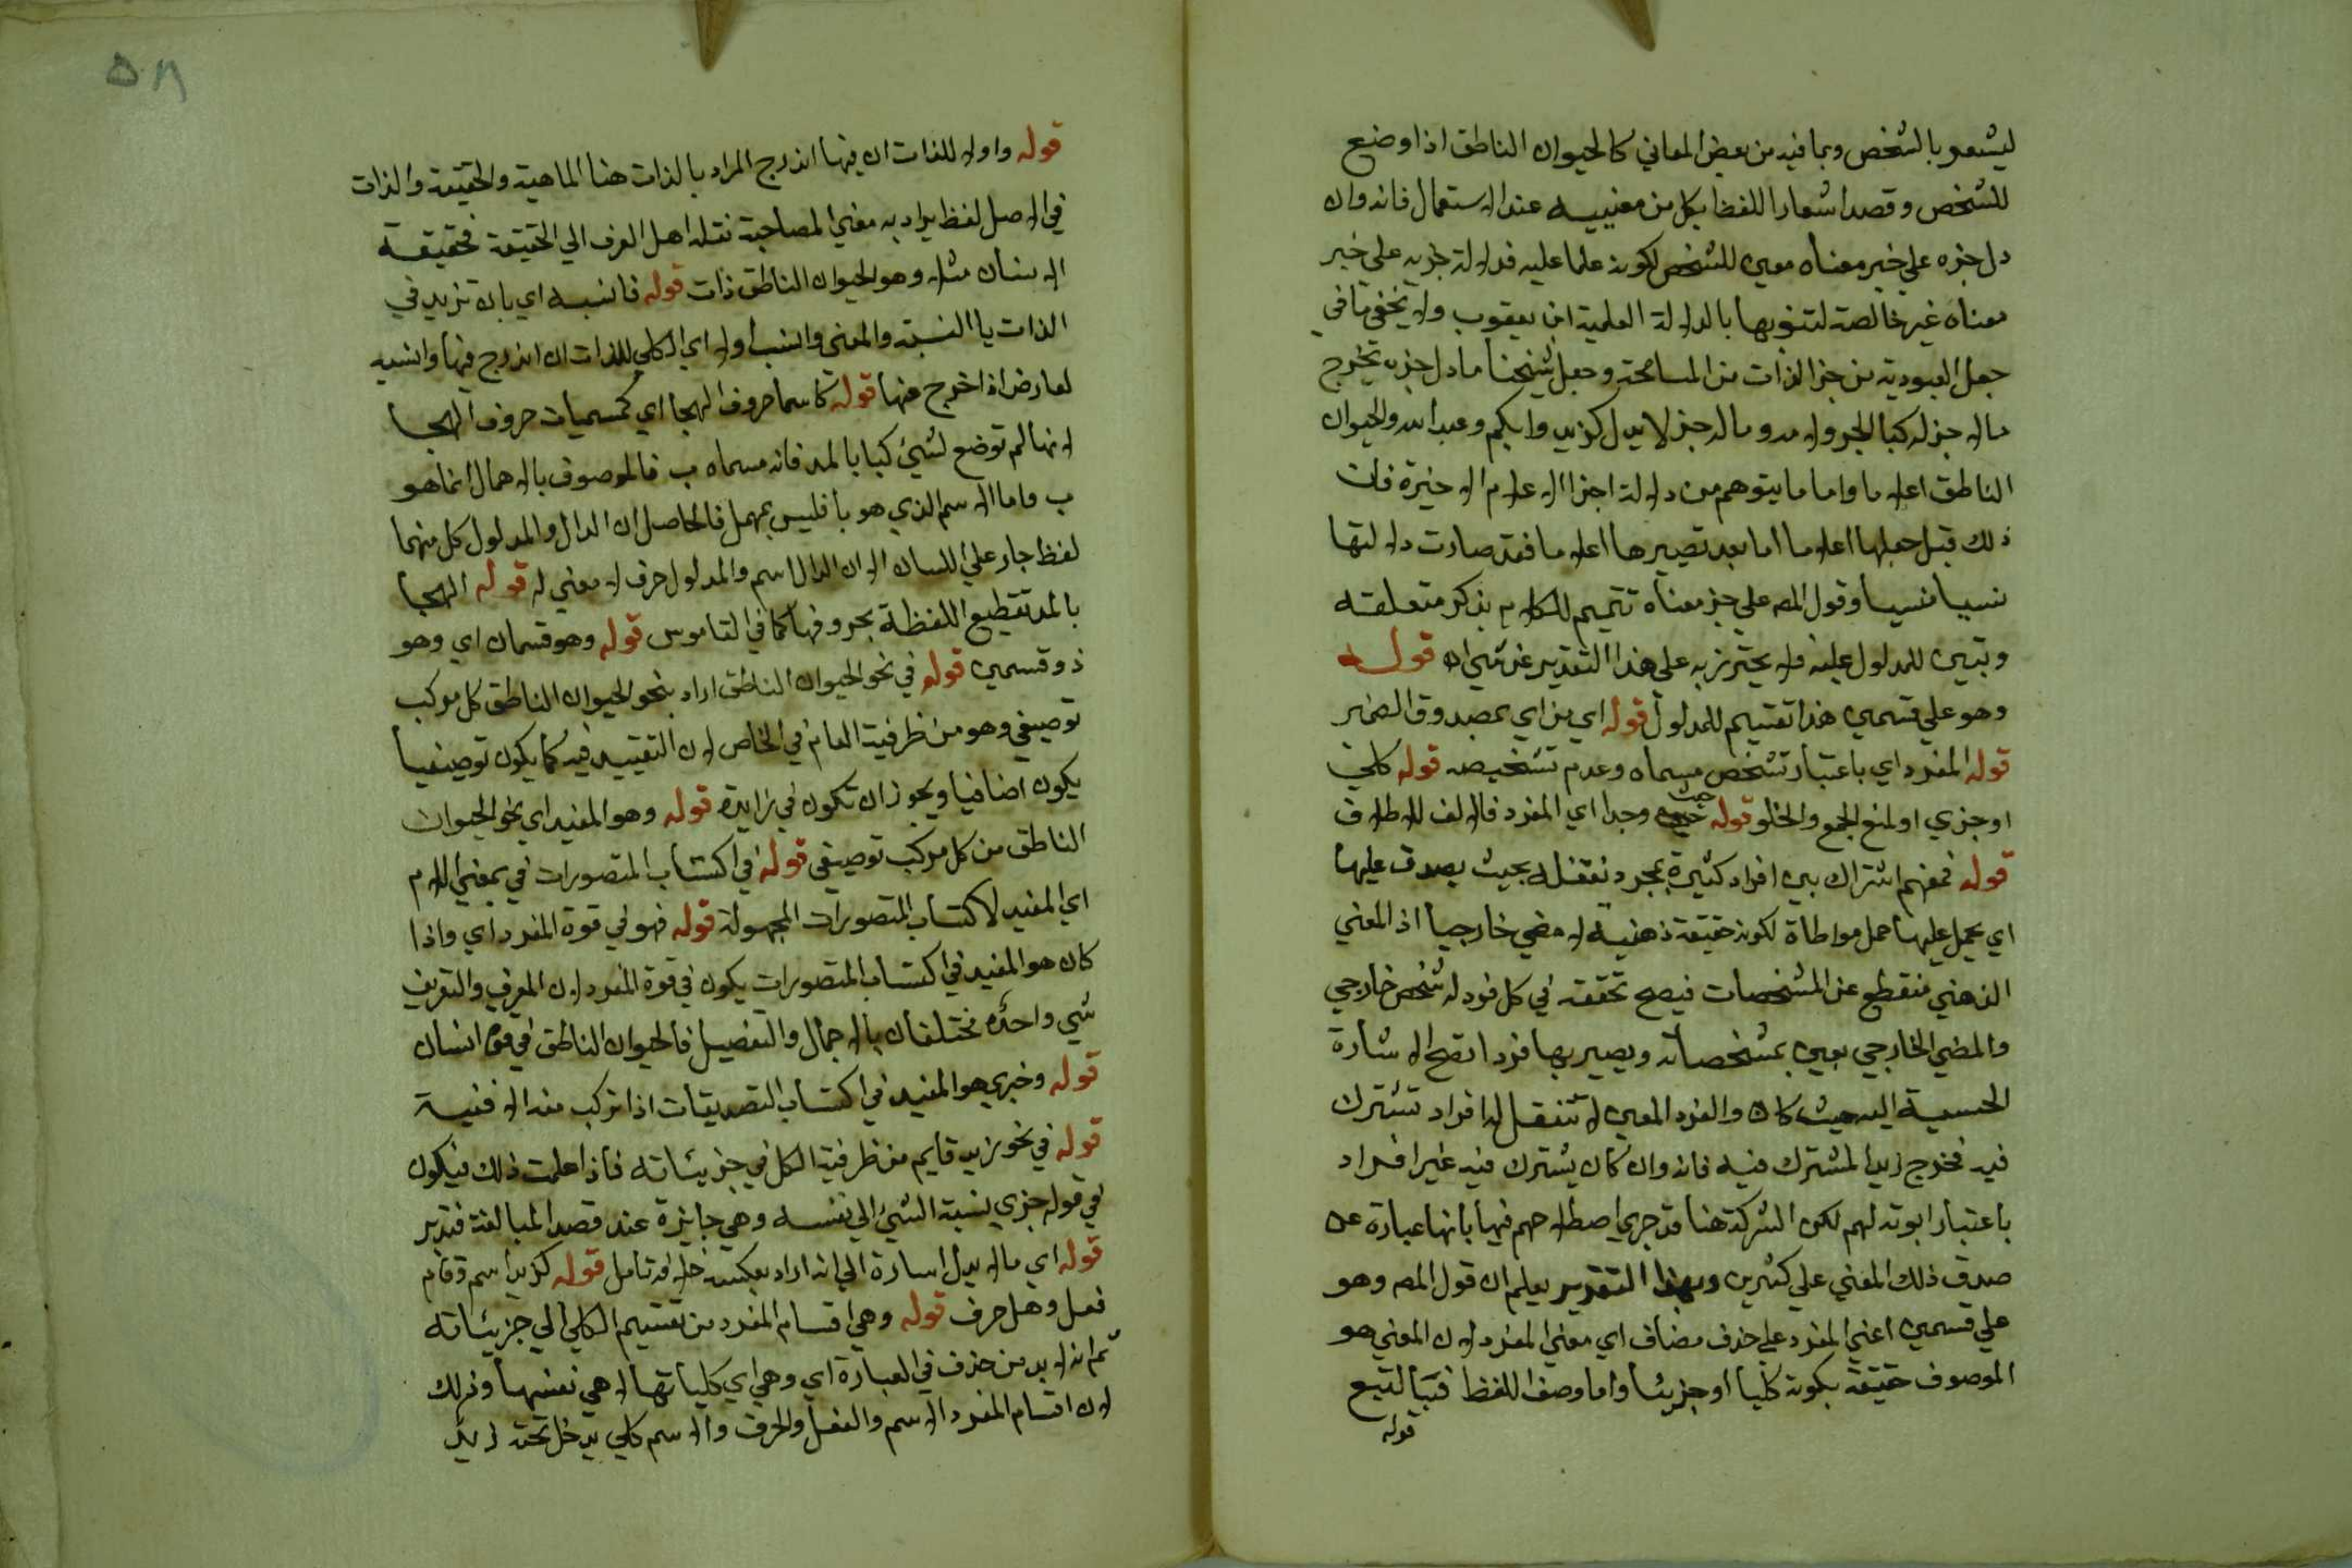 ليشعر بالشخص وبما فيه من بعض المعاني كالحيوان الناطق اذا وضع
للشخص وقصد اشعار اللفظ بكل من معنييه عند الاستعمال فانه وان
دل جزه علي جزء معناه معين للشخص لكونه علما عليه فدلالة جزيه علي جزء
معناه غير خالصة لتشوبها بالدلالة العلمية ابن يعقوب ولا يخفي ما في
جعل العبودية من جز الذات من المسامحة وجعل شيخنا ما دل جزه يخرج
مالا جز له كبا الجر ولامه وماله جز لا يدل كزيد وابكم وعبد الله والحيوان
الناطق اعلاما واما ما يتوهم من دلالة اجزا الاعلام الاخيرة فان
ذلك قبل جعلها اعلاما اما بعد تصييرها اعلاما فقد صارت دلالتها
نسيا منسيا وقول المص علي جز معناه تتميم للكلام بذكر متعلقه
وتبيين للمدلول عليه فلا يحترز به علي هذا التقدير عن شي اه قوله
وهو علي قسمين هذا تقسيم للمدلول قوله اي من اي بمصدوق الضمير
قوله المفرد اي باعتبار تشخص مسماه وعدم تشخيصه قوله كلي
او جزي او لمنع الجمع والخلو قوله حيث وجد اي المفرد فالالف للاطلاق
قوله فمفهم اشتراك بين افراد كثيرة بمجرد تعقله بحيث يصدق عليها
اي يحمل عليها حمل مواطاة لكونه حقيقة ذهنية لا معني خارجيا اذ المعني
الذهني منقطع عن المشخصات فيصح تحققه في كل فرد له شخص خارجي
والمعني الخارجي يعين بمشخصاته ويصير بها فردا تصح الاشارة
الحسية اليه حيث كان والفرد المعين لا تنقل له افراد تشترك
فيه فخرج زيد المشترك فيه فانه وان كان يشترك فيه غير افراد
باعتبار ابوته لهم لكن الشركة هنا قد جري اصطلاحهم فيها بانها عبارة عن
صدق ذلك المعني علي كثيرين وبهذا التقدير يعلم ان قول المص وهو
علي قسمين اعني المفرد علي حذف مضاف اي معني المفرد لان المعني هو
الموصوف حقيقة بكونه كليا او جزيئا واما وصف اللفظ فبالتبع
قوله
٥٨
قوله واولا للذات ان فيها اندرج المراد بالذات هنا الماهية والحقيقة والذات
في الاصل لفظ يراد به معني المصاحبة نقله اهل العرف الي الحقيقة فحقيقة
الانسان مثلا وهو الحيوان الناطق ذات قوله فانسبه اي بان تزيد في
الذات يا النسبة والمعني وانسب اولا اي الكلي للذات ان اندرج فيها وانسبه
لعارض اذا خرج عنها قوله كاسما حروف الهجا اي كمسميات حروف الهجا
لانها لم توضع لشيئ كبا بالمد فانه مسماه ب فالموصوف بالاهمال انما هو
ب واما الاسم الذي هو با فليس بمهمل فالحاصل ان الدال والمدلول كل منهما
لفظ جار علي اللسان الا ان الدال اسم والمدلول حرف لا معني له قوله الهجا
بالمد تقطيع اللفظة بحروفها كما في القاموس قوله وهو قسمان اي وهو
ذو قسمين قوله في نحو الحيوان الناطق اراد بنحو الحيوان الناطق كل مركب
توصيفي وهو من ظرفية العام في الخاص لان التقييد فيه كما يكون توصيفيا
يكون اضافيا ويجوز ان تكون في زايدة قوله وهو المفيد اي نحو الحيوان
الناطق من كل مركب توصيفي قوله في اكتساب المتصورات في بمعني اللام
اي المفيد لاكتساب المتصورات المجهولة قوله فهو في قوة المفرد اي واذا
كان هو المفيد في اكتساب المتصورات يكون في قوة المفرد لان المعرف والتعريف
شي واحد مختلفان بالاجمال والتفصيل فالحيوان الناطق في قوة انسان
قوله وخبري هو المفيد في اكتساب التصديقات اذا تركب منه الاقيسة
قوله في نحو زيد قايم من ظرفية الكل في جزيئاته فاذا علمت ذلك فيكون
في قوله جزي نسبة الشيئ الي نفسه وهي جايزة عند قصد المبالغة فتدبر
قوله اي مالا يدل اشارة الي انه اراد بعكسه خلافه تامل قوله كزيد اسم وقام
فعل وهل حرف قوله وهي اقسام المفرد من تقسيم الكلي الي جزيئاته
ثم انه لابد من حذف في العبارة اي وهي اي كلياتها لا هي نفسها وذلك
لان اقسام المفرد الاسم والفعل والحرف والاسم كلي يدخل تحته زيد